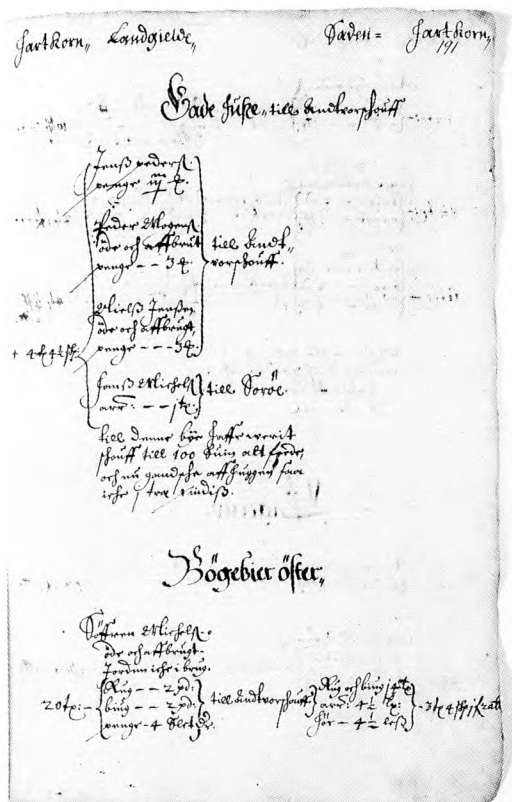 Hartkorn„ Landgielde„ Saden= Hartkorn„
191
Gade Huße„ till Andtvorschouff
Jenß peders.
penge iij
Peder Mogenß
öde och affbrut
penge -- 3
till Andt„
vorschouff.
Nielß Jenßen
öde och affbrugt,
penge --- 3
Hanß Michelß
till Soröe.
till denne bye haffr werit
schouff till 100 suin alt Eede,
och nu gandsche affhuggen saa
iche 1 træ findiß.
Bögebier öster„
Söffren Michelß.
öde och affbrugt.
Jorden iche i brug.
Rug -- 2 pd:
biug -- 2 pd:
penge - 4 Sletd
till Andtvorschouff
Rug och biug
arr: 4½ tp:
hör - 4½ leß